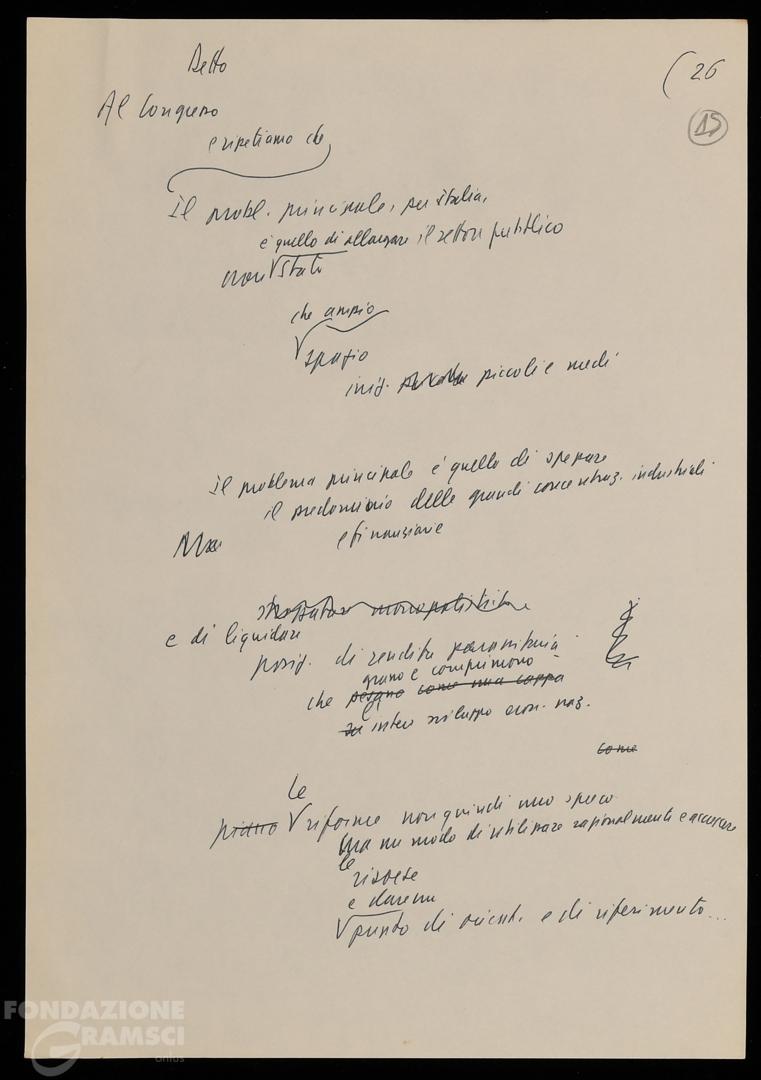 Detto
(26
15
Al Congresso
e ripetiamo che
Il probl. principale, per Italia,
è quello di allargare il settore pubblico
non Stato
che ampio
spazio
iniz. piccoli e medi
Il problema principale è quello di spezzare
il predominio delle grandi concentraz. industriali
e finanziarie
Ma
strozzature monopolistiche
e di liquidare
posiz. di rendita parassitaria
grano e comprimono
che pesano come una cappa
su intero sviluppo econ. naz.
come
le
piano riforme non quindi uno spreco
Ma un modo di utilizzare razionalmente e accrescere
le
risorse
e daremo
punto di orient. e di riferimento...
FONDAZIONE
GRAMSCI
onlus